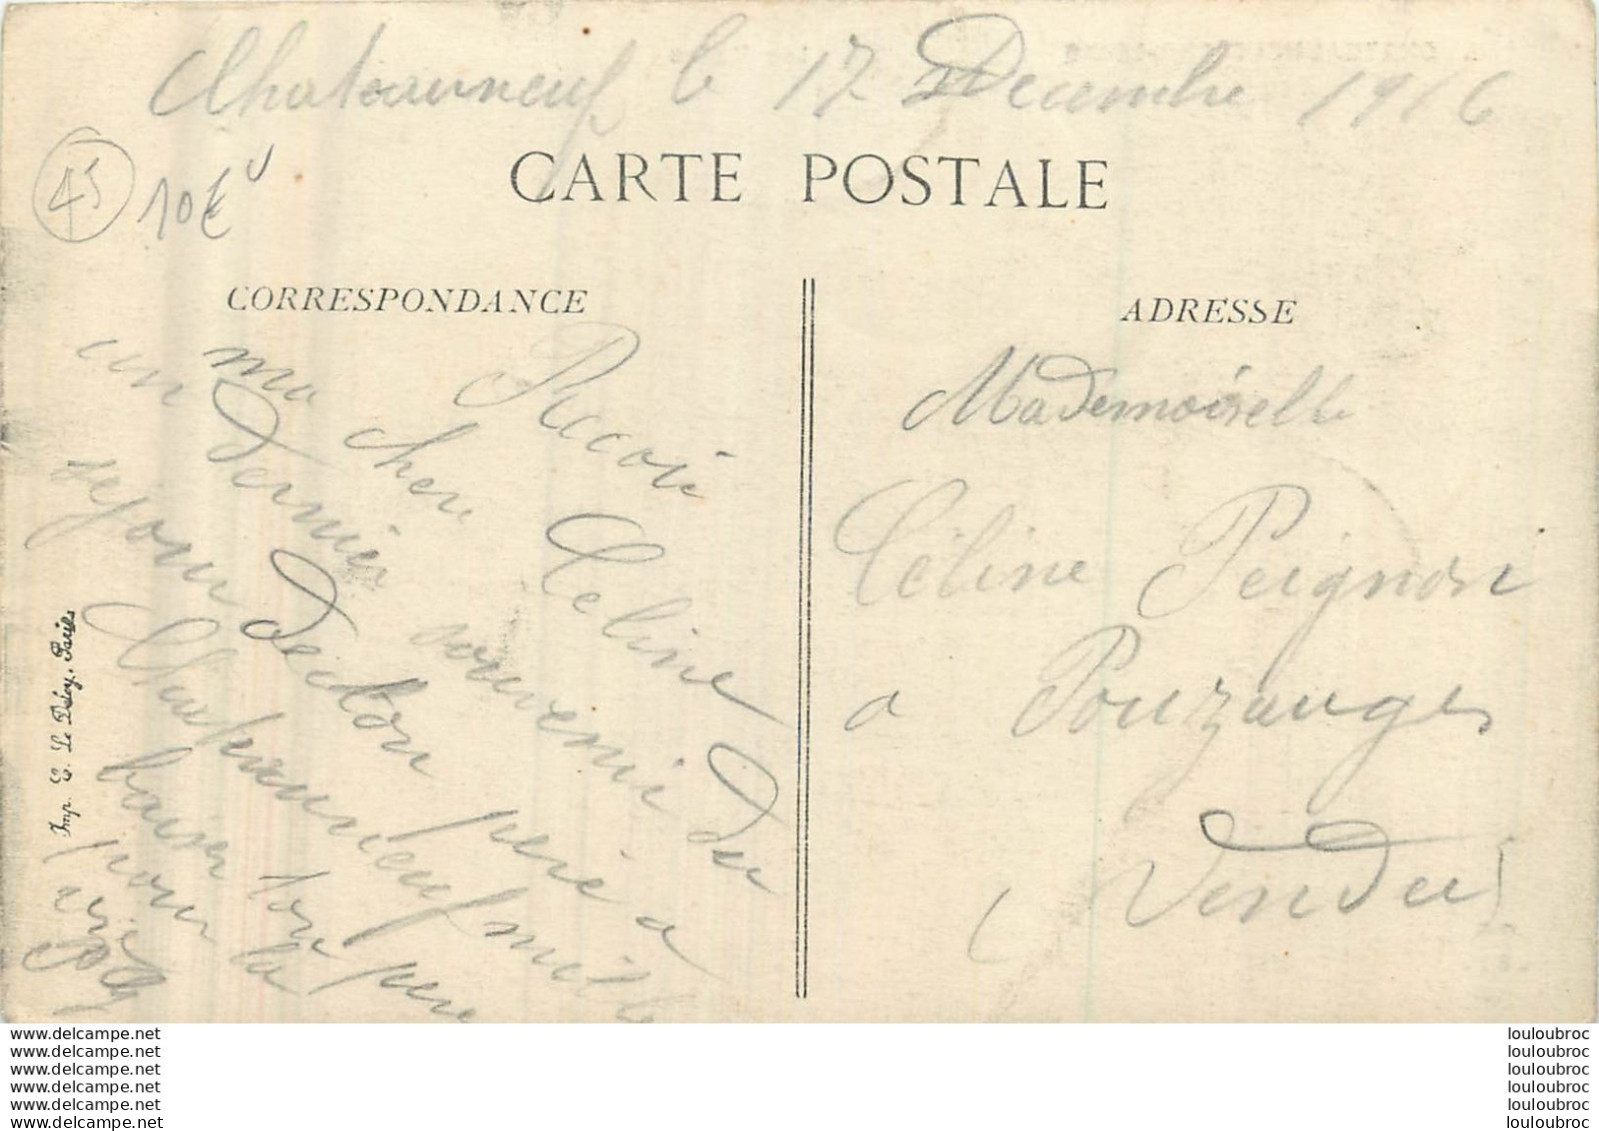 Chateauneuf le 17 Décembre 1916
CARTE POSTALE
45
10€
CORRESPONDANCE
Recoie
ma chere Celine
un dernier souvenir du
sejour de ton pere a
Chateauneuf mille
baiser ton pere
pour la
vie
ADRESSE
Mademoiselle
Céline Peignon
a Pouzauges
(Vendee)
Imp. E. Le Deley, Paris
www.delcampe.net
www.delcampe.net
www.delcampe.net
www.delcampe.net
www.delcampe.net
www.delcampe.net
louloubroc
louloubroc
louloubroc
louloubroc
louloubroc
louloubroc